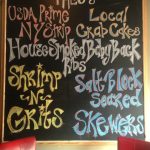 USDA Prime
NY Strip
Local
Crab Cakes
House Smoked Baby Back
Ribs
Shrimp
-N-
Grits
Salt Block
Seared
Skewers